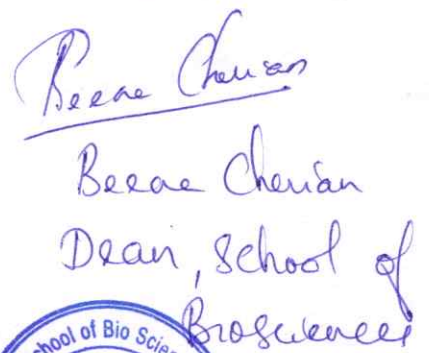 Beena Cherian
Beena Cherian
Dean, School of
Biosciences
School of Bio Scien